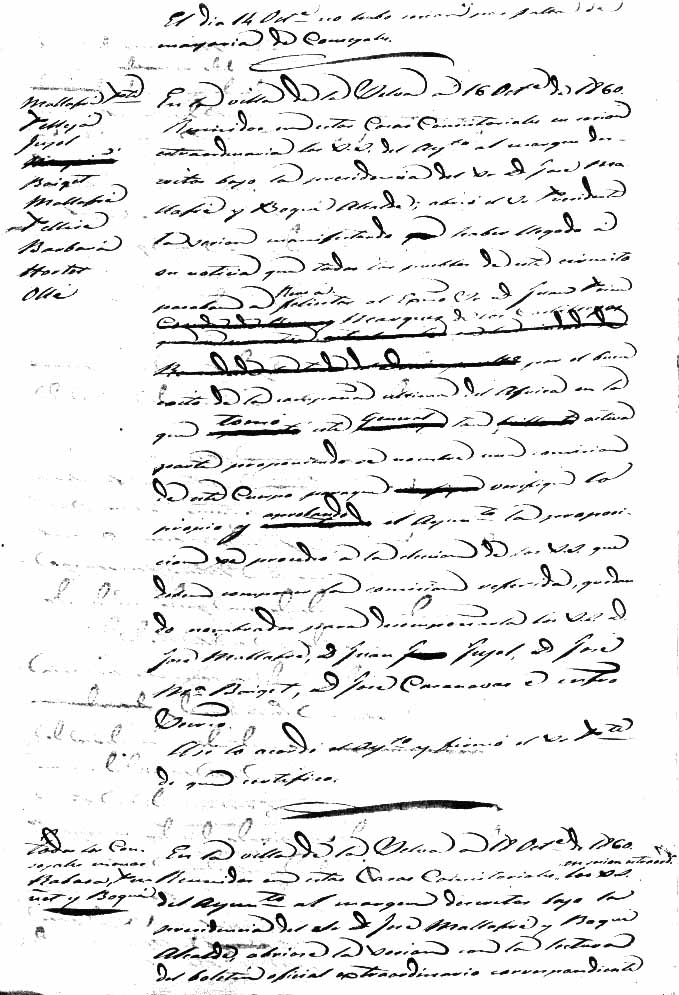 El dia 14 Oct.e no hubo sesion por falta de
mayoria de Concejales.
Mallafré Pte
Pellejá
Jujol
Baiget
Mallafré
Pellicer
Barberá
Hortet
Ollé
En la villa de la Selva a 16 Oct.e de 1860.
Reunidos en estas Casas Consistoriales en sesion
extraordinaria los S.S. del Ayto al margen des-
critos bajo la presidencia del Sr. D. José Ma-
llafré y Boqué Alcalde; abrió el Sr. Presidente
la sesion manifestando haber llegado á
su noticia que todos los pueblos de este circuito
pasaban á felicitar al Exmo Sr. D. Juan Prim
Marques de los Castillejos
por el buen
exito de la campaña de Africa en la
que tomó este General tan activa
parte proponiendo se nombre una comision
de este Cuerpo paraque verifique lo
propio y aprobando el Ayunto la proposi-
cion se procedio á la eleccion de los S.S. que
deben componer la comision referida, quedan
do nombrados para desempeñarla los S.S. D.
José Mallafré, D. Juan Jujol, D. José
Ma. Baiget, D. José Casanovas é infro
Secrio
Asi lo acordó el Ayto y firmó el Sr. Pte
de que certifico.
Todos los Con-
cejales menos
Barberá,
y Boqué
En la villa de la Selva a 18 Oct.e de 1860.
Reunidos en estas Casas Consistoriales, los S.S.
en sesion
del Ayunto al margen descritos bajo la
presidencia del D. José Mallafré y Boqué
Alcalde, abriose la sesion con la lectura
del boletin oficial extraordinario correspondiente